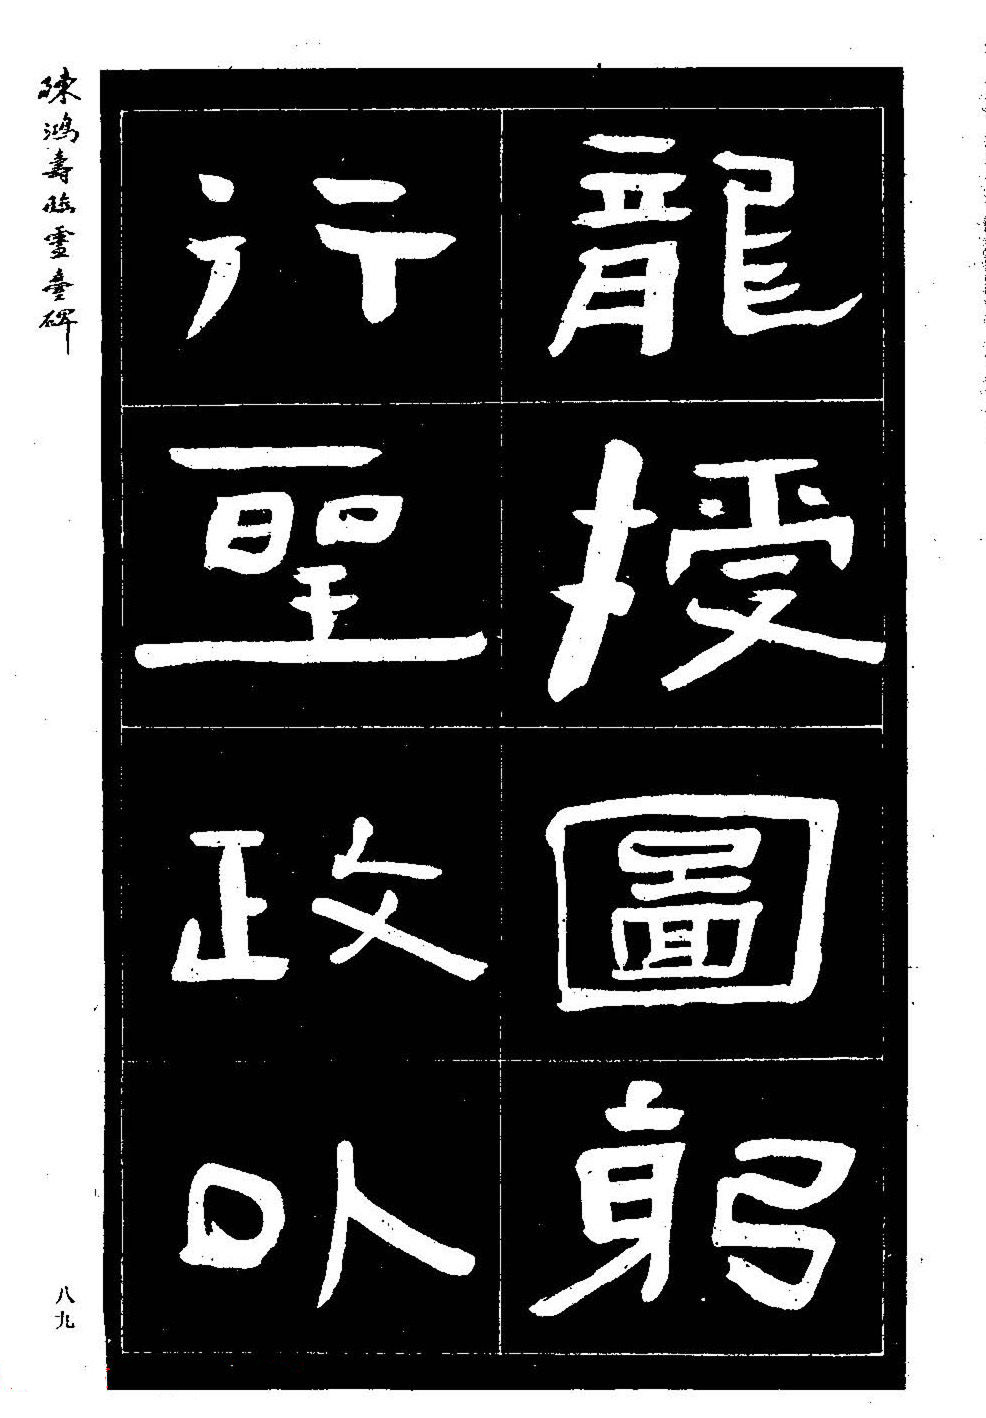 龍授圖躬
行聖政以
陳鴻壽臨靈臺碑
八九